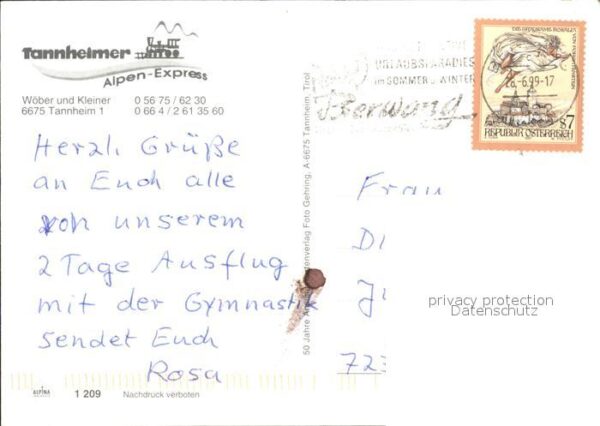 Tannheimer
Alpen-Express
Wöber und Kleiner 0 56 75 / 62 30
6675 Tannheim 1 0 66 4 / 2 61 35 60
Herzl. Grüße
an Euch alle
von unserem
2 Tage Ausflug
mit der Gymnastik
sendet Euch
Rosa
ALPINA
1 209 Nachdruck verboten
50 Jahre Foto Gehring, A-6675 Tannheim, Tirol
URLAUBSPARADIES
im SOMMER u. WINTER
Berwang
-6.99-17
S7
REPUBLIK ÖSTERREICH
Frau
privacy protection
Datenschutz